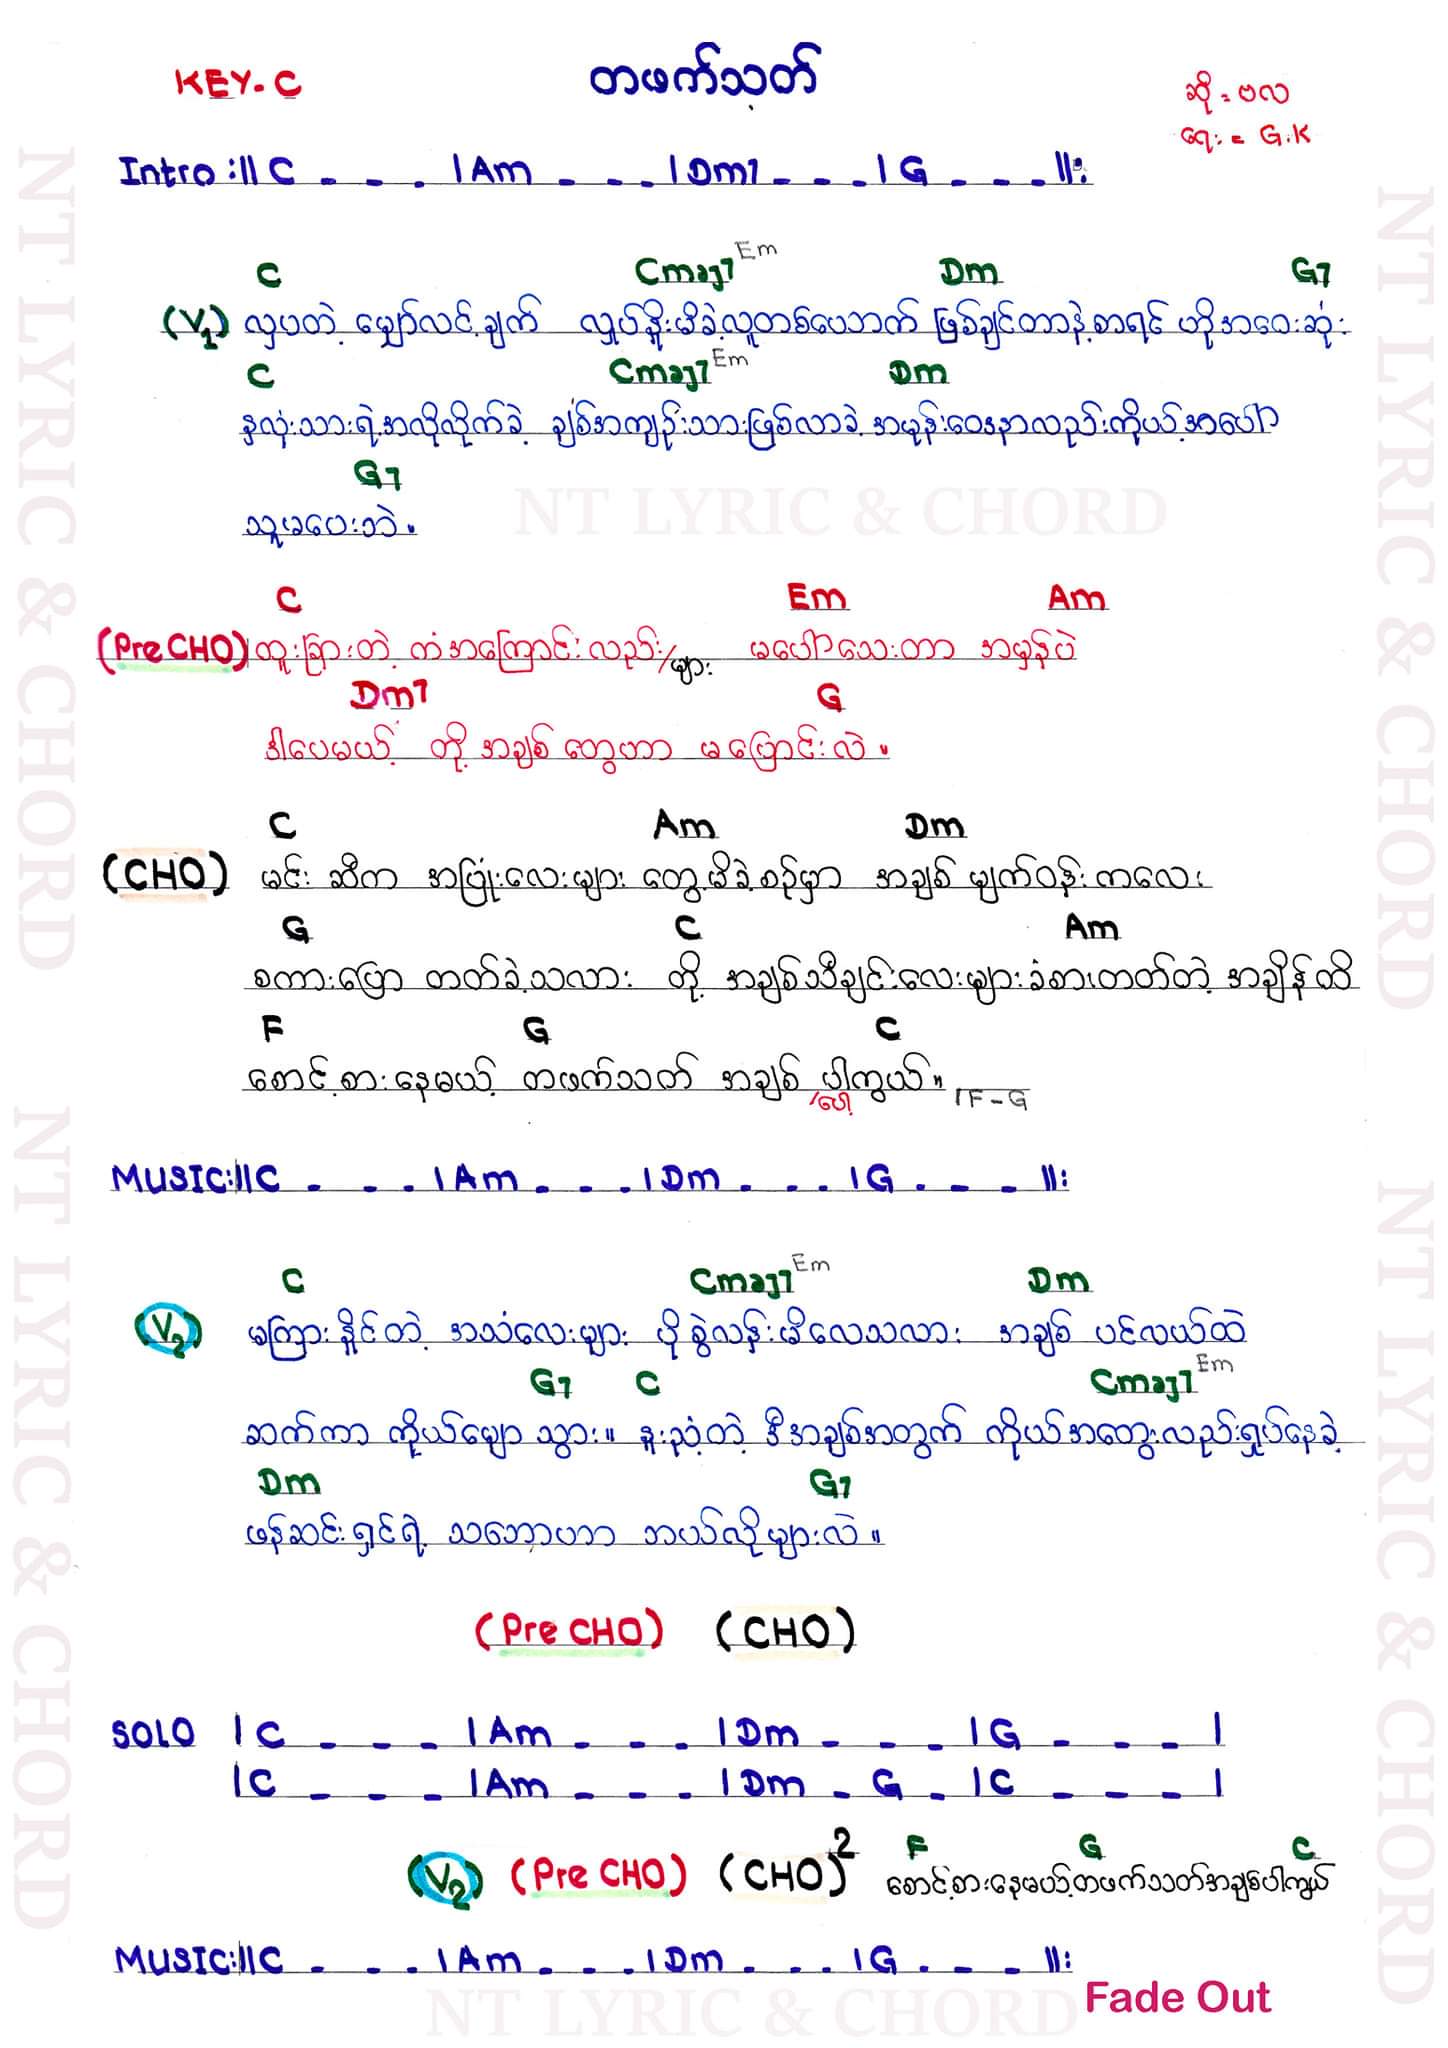 KEY. C
တဖက်သတ်
ဆို = ဗလ
ရေး = G.K
Intro :|| C - - - | Am - - - | Dm7 - - - | G - - - ||:
C Cmaj7 Em Dm G7
(V1) လှပတဲ့ မျှော်လင့်ချက် လှုပ်နှိုးမိခဲ့လူတစ်ယောက် ဖြစ်ချင်တာနဲ့စာရင် ဟိုအဝေးဆုံး
C Cmaj7 Em Dm
နှလုံးသားရဲ့အလိုလိုက်ခဲ့ ချစ်အကျဉ်းသားဖြစ်လာခဲ့ အမုန်းဝေဒနာလည်းကိုယ့်အပေါ်
G7
သူမပေးဘဲ။
C Em Am
(Pre CHO) ထူးခြားတဲ့ ကံအကြောင်းလည်း/များ မပေါ်သေးတာ အမှန်ပဲ
Dm7 G
ဒါပေမယ့် တို့အချစ်တွေဟာ မပြောင်းလဲ။
C Am Dm
(CHO) မင်း ဆီက အပြုံးလေးများ တွေ့မိခဲ့စဉ်မှာ အချစ် မျက်ဝန်းကလေး
G C Am
စကားပြော တတ်ခဲ့သလား တို့ အချစ်သီချင်းလေးများခံစားတတ်တဲ့ အချိန်ထိ
F G C
စောင့်စားနေမယ့် တဖက်သတ် အချစ် ပါကွယ်။ | F - G
/ပေါ့
MUSIC:|| C - - - | Am - - - | Dm - - - | G - - - ||:
C Cmaj7 Em Dm
V2 မကြားနိုင်တဲ့ အသံလေးများ ပိုစွဲလန်းမိလေသလား အချစ် ပင်လယ်ထဲ
G7 C Cmaj7 Em
ဆက်ကာ ကိုယ်မျော သွား။ နူးညံ့တဲ့ ဒီအချစ်အတွက် ကိုယ်အတွေးလည်းရှုပ်နေခဲ့
Dm G7
ဖန်ဆင်းရှင်ရဲ့ သဘောဟာ ဘယ်လိုများလဲ။
(Pre CHO) (CHO)
SOLO | C - - - | Am - - - | Dm - - - | G - - - |
| C - - - | Am - - - | Dm - G - | C - - - |
F G C
(V2) (Pre CHO) (CHO)2 စောင့်စားနေမယ့်တဖက်သတ်အချစ်ပါကွယ်
MUSIC:|| C - - - | Am - - - | Dm - - - | G - - - ||:
Fade Out
NT LYRIC & CHORD
NT LYRIC & CHORD
NT LYRIC & CHORD
NT LYRIC & CHORD
NT LYRIC & CHORD
NT LYRIC & CHORD